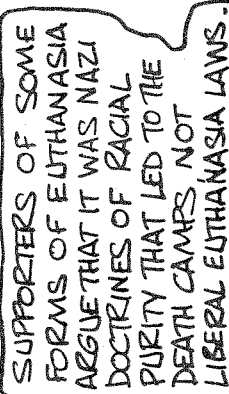 SUPPORTERS OF SOME
FORMS OF EUTHANASIA
ARGUE THAT IT WAS NAZI
DOCTRINES OF RACIAL
PURITY THAT LED TO THE
DEATH CAMPS NOT
LIBERAL EUTHANASIA LAWS.